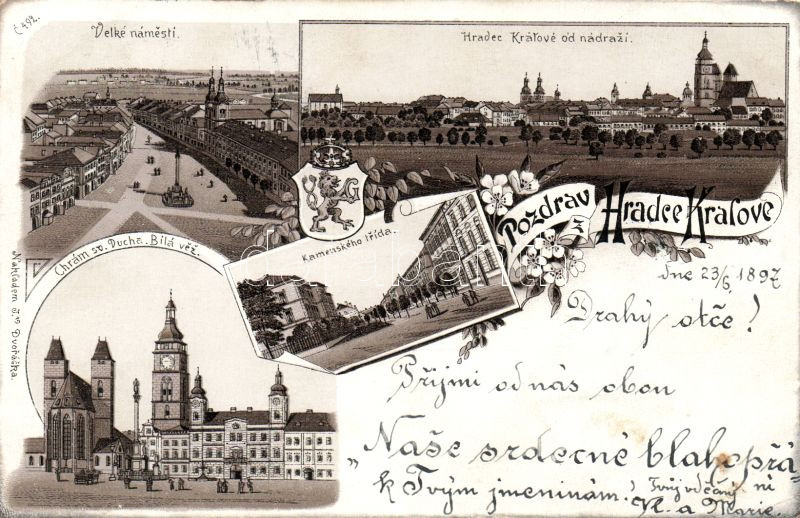 Č 492.
Velké náměstí.
Hradec Králové od nádraží.
Pozdrav z Hradce Králové
Kamenského třída.
Chrám sv. Ducha. Bílá věž.
Nákladem J. Dvořáčka.
dne 23/6 1897
Drahý otče!
Přijmi od nás obou
"Naše srdečné blahopřá-
ní k Tvým jmeninám!
Tvůj vděčný
Vl. a Marie.